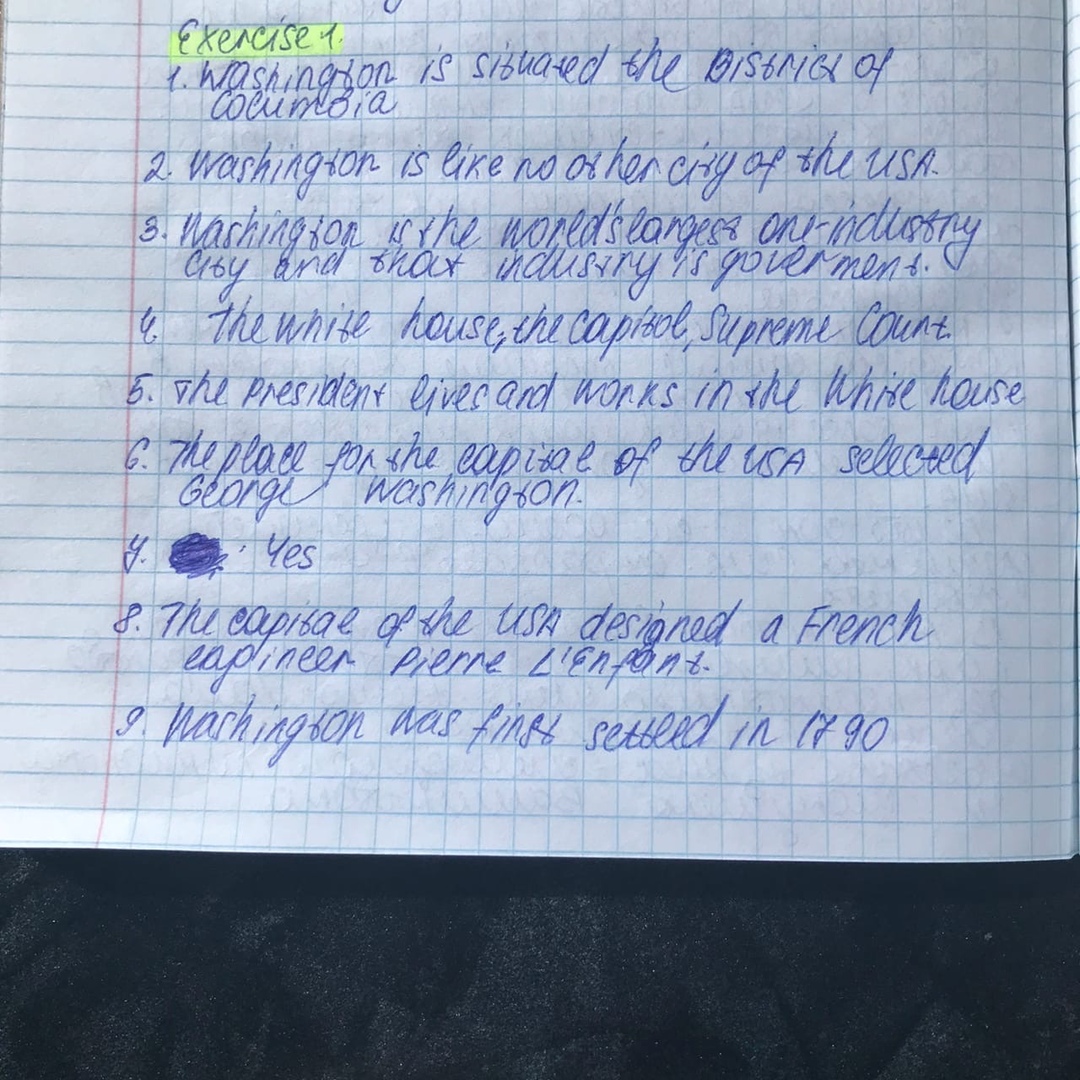 Exercise 1.
1. Washington is situated the District of
Columbia
2. Washington is like no other city of the USA.
3. Washington is the world's largest one-industry
city and that industry is goverment.
4. The white house, the capitol, Supreme Court.
5. The president lives and works in the White house
6. The place for the capital of the USA selected
George Washington.
7. Yes
8. The capital of the USA designed a French
engineer Pierre L'Enfant.
9. Washington was first settled in 1790